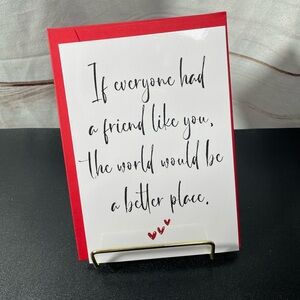 If everyone had
a friend like you,
the world would be
a better place.